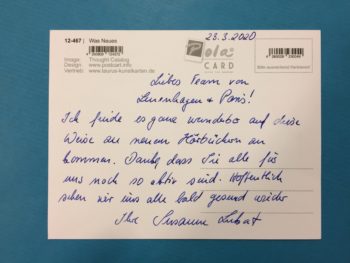 12-467 | Was Neues
Image: Thought Catalog
Design: www.postcart.info
Vertrieb: www.taurus-kunstkarten.de
Pola
CARD
23.3.2020
Liebes Team von
Lüenhagen & Paris!
Ich finde es ganz wunderbar auf diese
Weise an neuen Hörbüchern an
kommen. Danke dass Sie alle für
uns noch so aktiv sind. Hoffentlich
sehen wir uns alle bald gesund wieder
Ihre Susanne